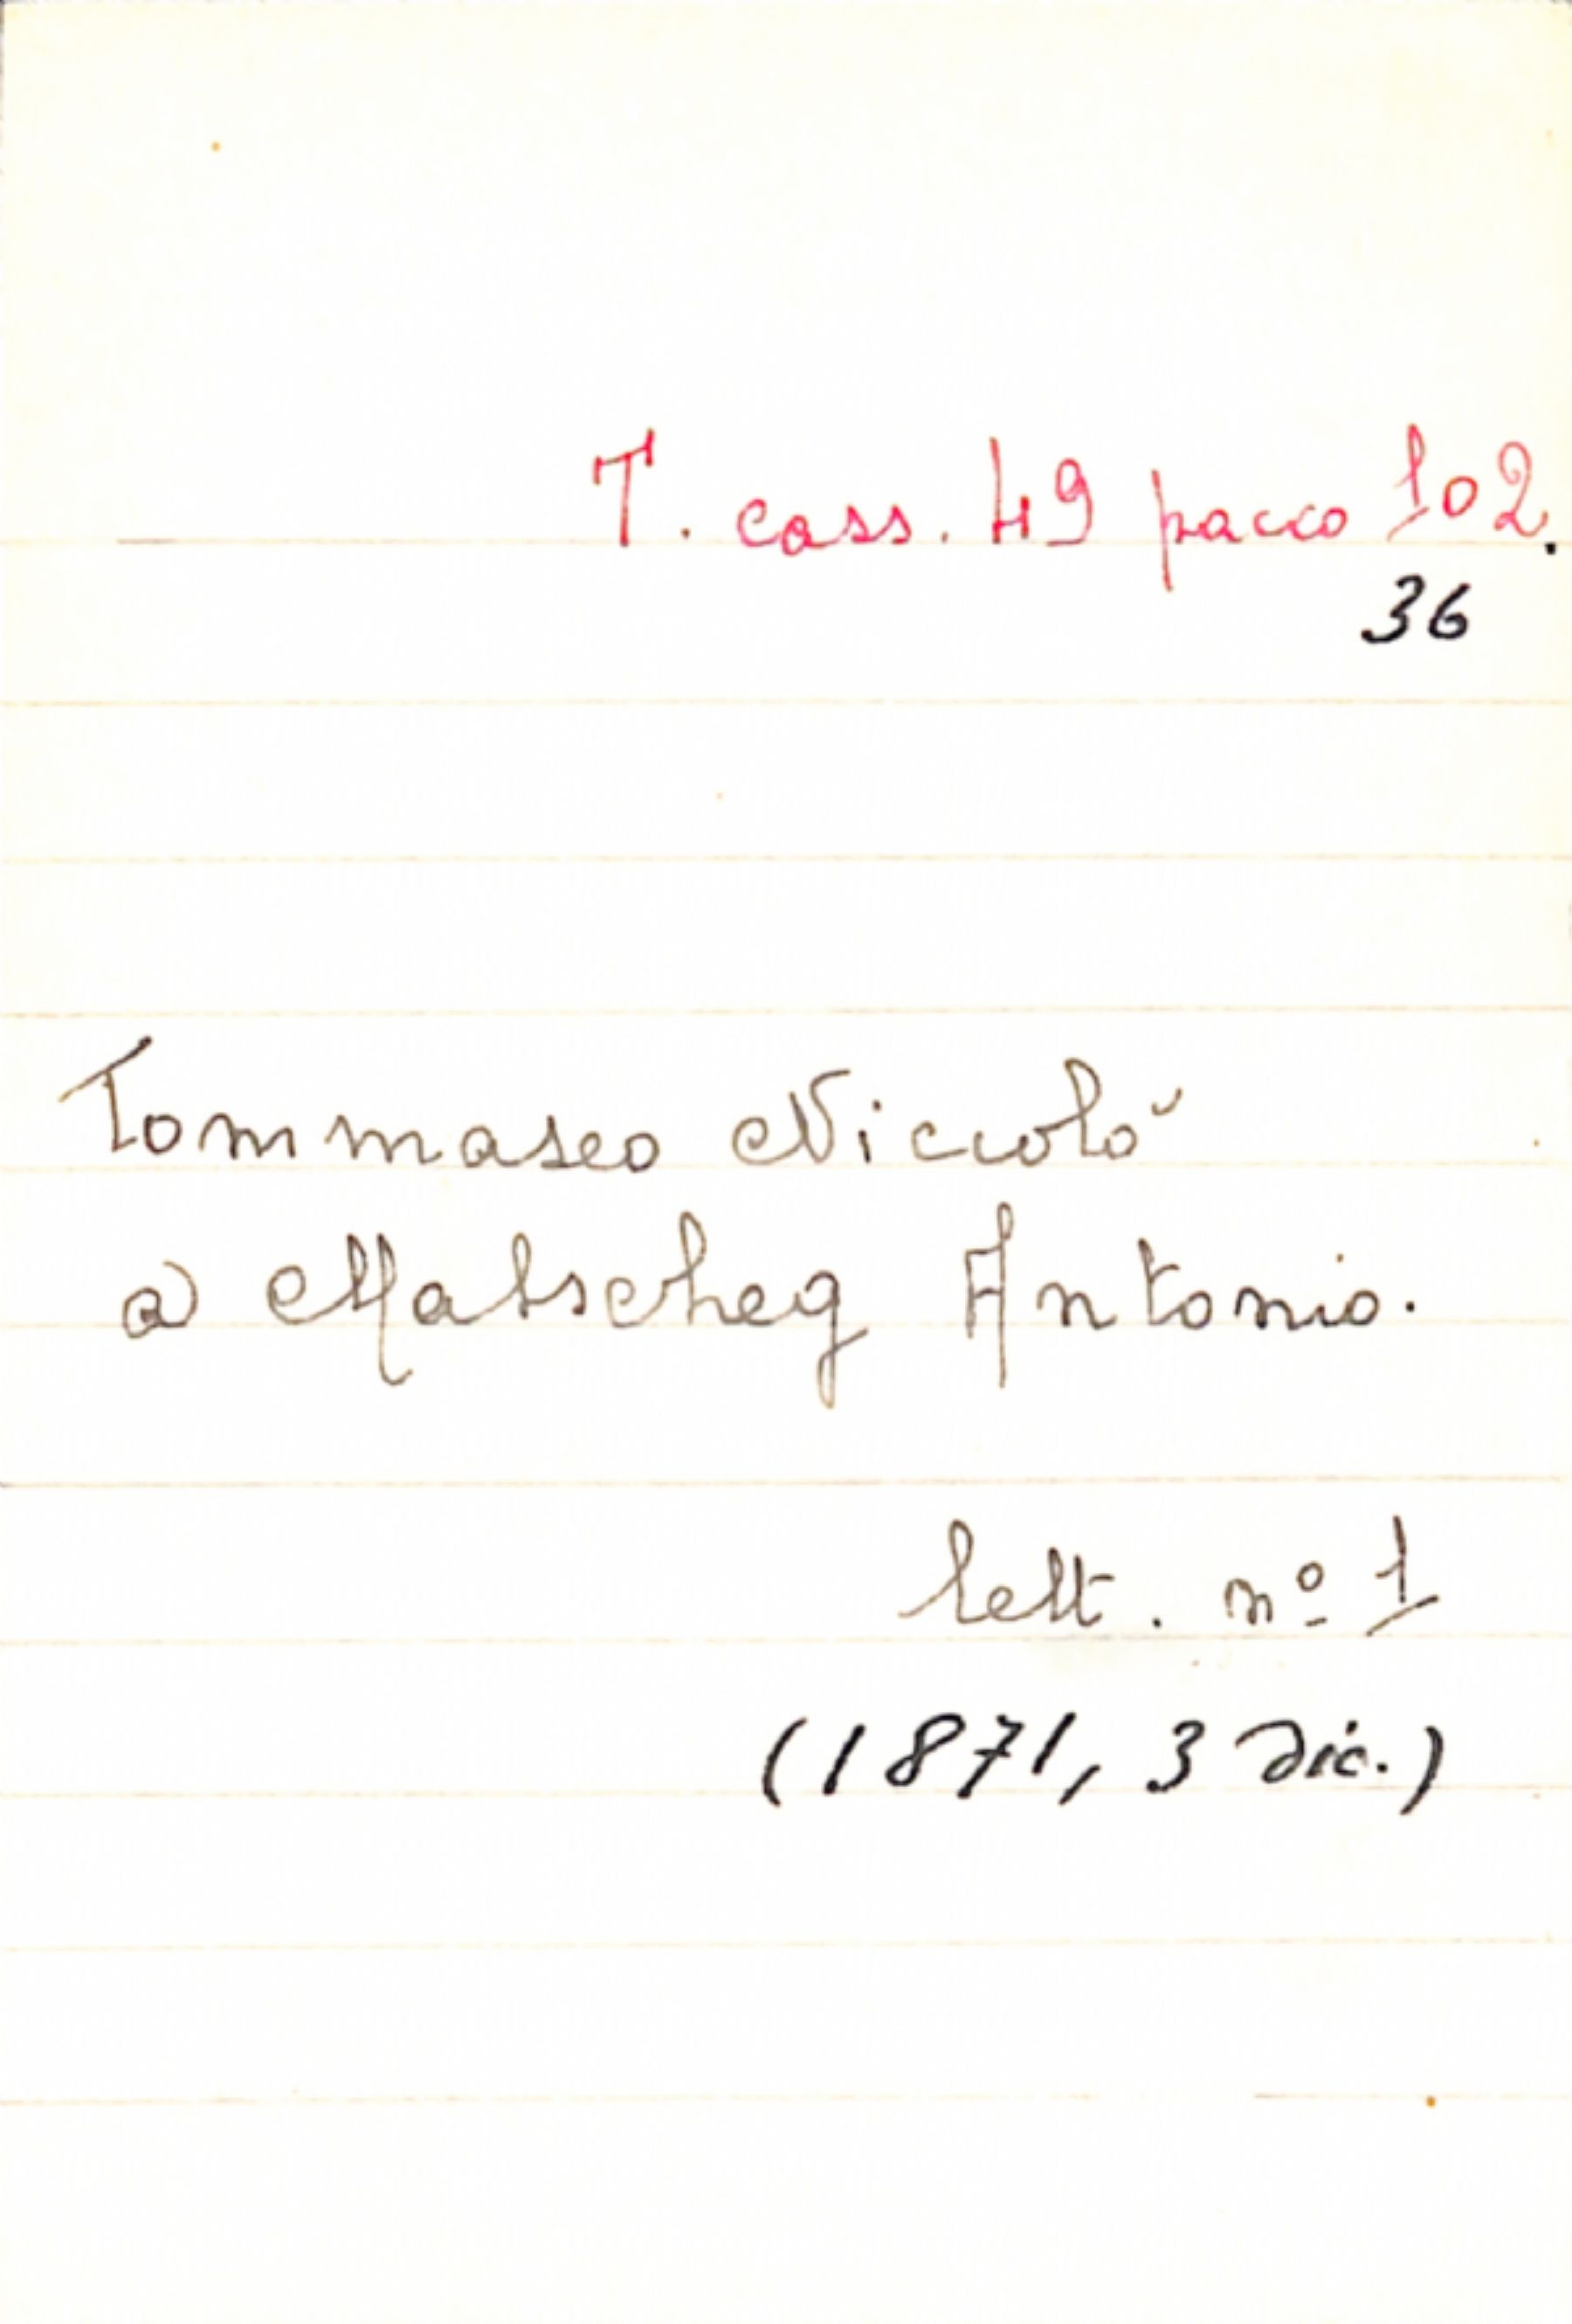 T. cass. 49 pacco 102.
36
Tommaseo Niccolò
a Matscheg Antonio.
lett. nº 1
(1871, 3 dic.)